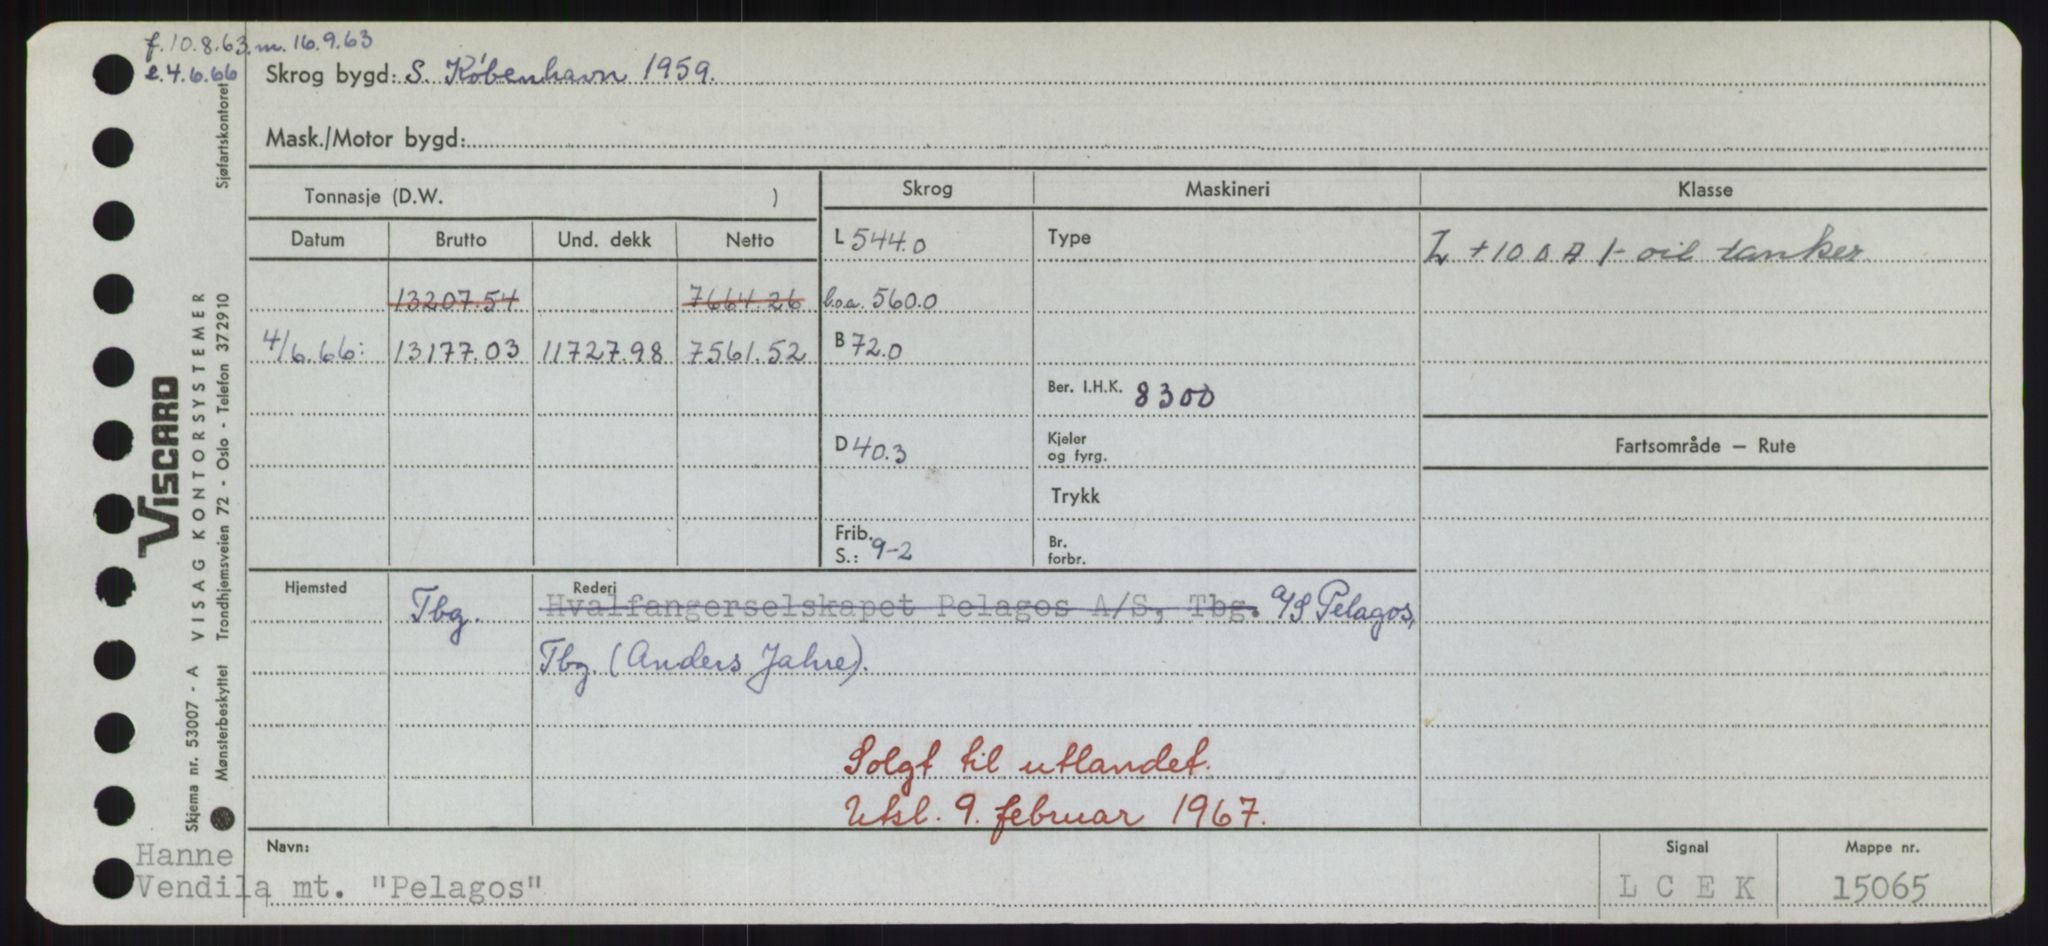 f. 10.8.63. m. 16.9.63
e. 4.6.66
Skrog bygd: S. København 1959.
Mask./Motor bygd:
Tonnasje (D.W. )
Skrog
Maskineri
Klasse
Datum
Brutto
Und. dekk
Netto
L 544.0
Type
+ 10 A 1- oil tanker
13207.54
7664.26
l.o.a. 560.0
4/6.66:
13177.03
11727.98
7561.52
B 72.0
Ber. I.H.K. 8300
D 40.3
Kjeler
og fyrg.
Fartsområde — Rute
Trykk
Frib.
S.: 9-2
Br.
forbr.
Hjemsted
Tbg.
Rederi
Hvalfangerselskapet Pelagos A/S, Tbg. A/S Pelagos,
Tbg. (Anders Jahre).
Solgt til utlandet.
Utsl. 9. februar 1967.
Navn:
Hanne
Vendila mt. "Pelagos"
Signal
L C E K
Mappe nr.
15065
VISCARD
Skjema nr. 53007 - A VISAG KONTORSYSTEMER
Mønsterbeskyttet Trondhjemsveien 72 - Oslo - Telefon 372910
Sjøfartskontoret